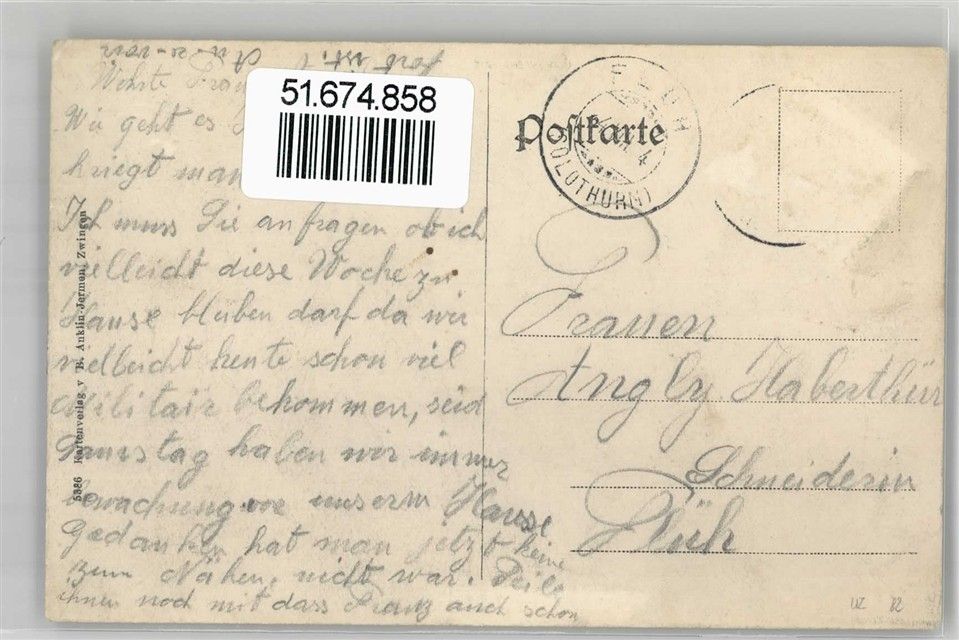 fort ist.
Werte Frau
Wie geht es
kriegt man
Ich muss Sie anfragen ob ich
vielleicht diese Woche zu
Hause bleiben darf da wir
vielleicht heute schon viel
Militair bekommen, seid
Samstag haben wir immer
bewachung vor unserm Hause
Gedanken hat man jetzt keine
zum Nähen, nicht war. Teile
ihnen noch mit dass Franz auch schon
5386 Kartenverlag v. B. Anklin-Jermen, Zwingen
51.674.858
Postkarte
FLÜH
(SOLOTHURN)
Frauen
Angly Haberthür
Schneiderin
Flüh
UZ 82